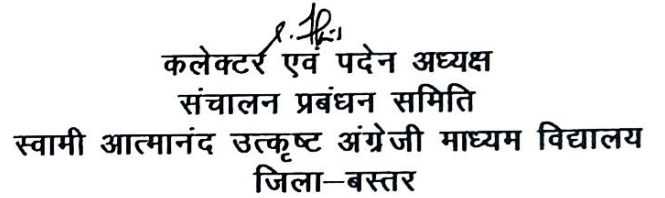 कलेक्टर एवं पदेन अध्यक्ष
संचालन प्रबंधन समिति
स्वामी आत्मानंद उत्कृष्ट अंग्रेजी माध्यम विद्यालय
जिला–बस्तर